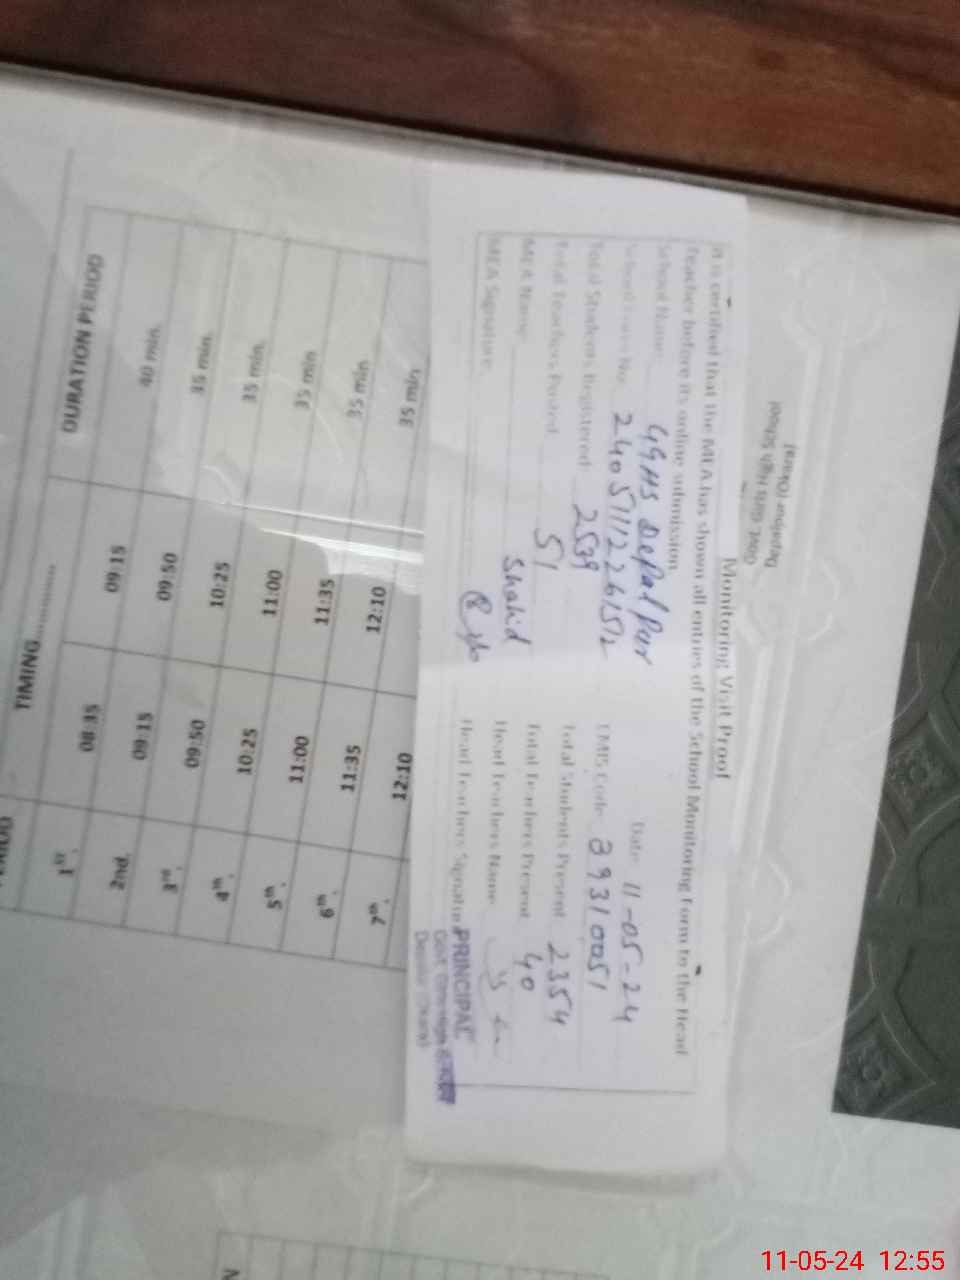 Govt. Girls High School
Depalpur (Okara)
Monitoring Visit Proof
It is certified that the MEA has shown all entries of the School Monitoring Form to the Head
Teacher before its online submission.
School Name: GGHS Depalpur Date: 11-05-24
School Form No: EMIS Code: 39310051
Total Students Registered: 2539 Total Students Present: 2354
Total Teachers Posted: 51 Total Teachers Present: 40
MEA Name: Shahid Head Teachers Name:
MEA Signature: Head Teachers Signature
PRINCIPAL
TIMING DURATION PERIOD
1st. 08:35 09:15 40 min.
2nd. 09:15 09:50 35 min.
3rd. 09:50 10:25 35 min.
4th. 10:25 11:00 35 min
5th. 11:00 11:35 35 min
6th. 11:35 12:10 35 min
7th. 12:10
11-05-24 12:55